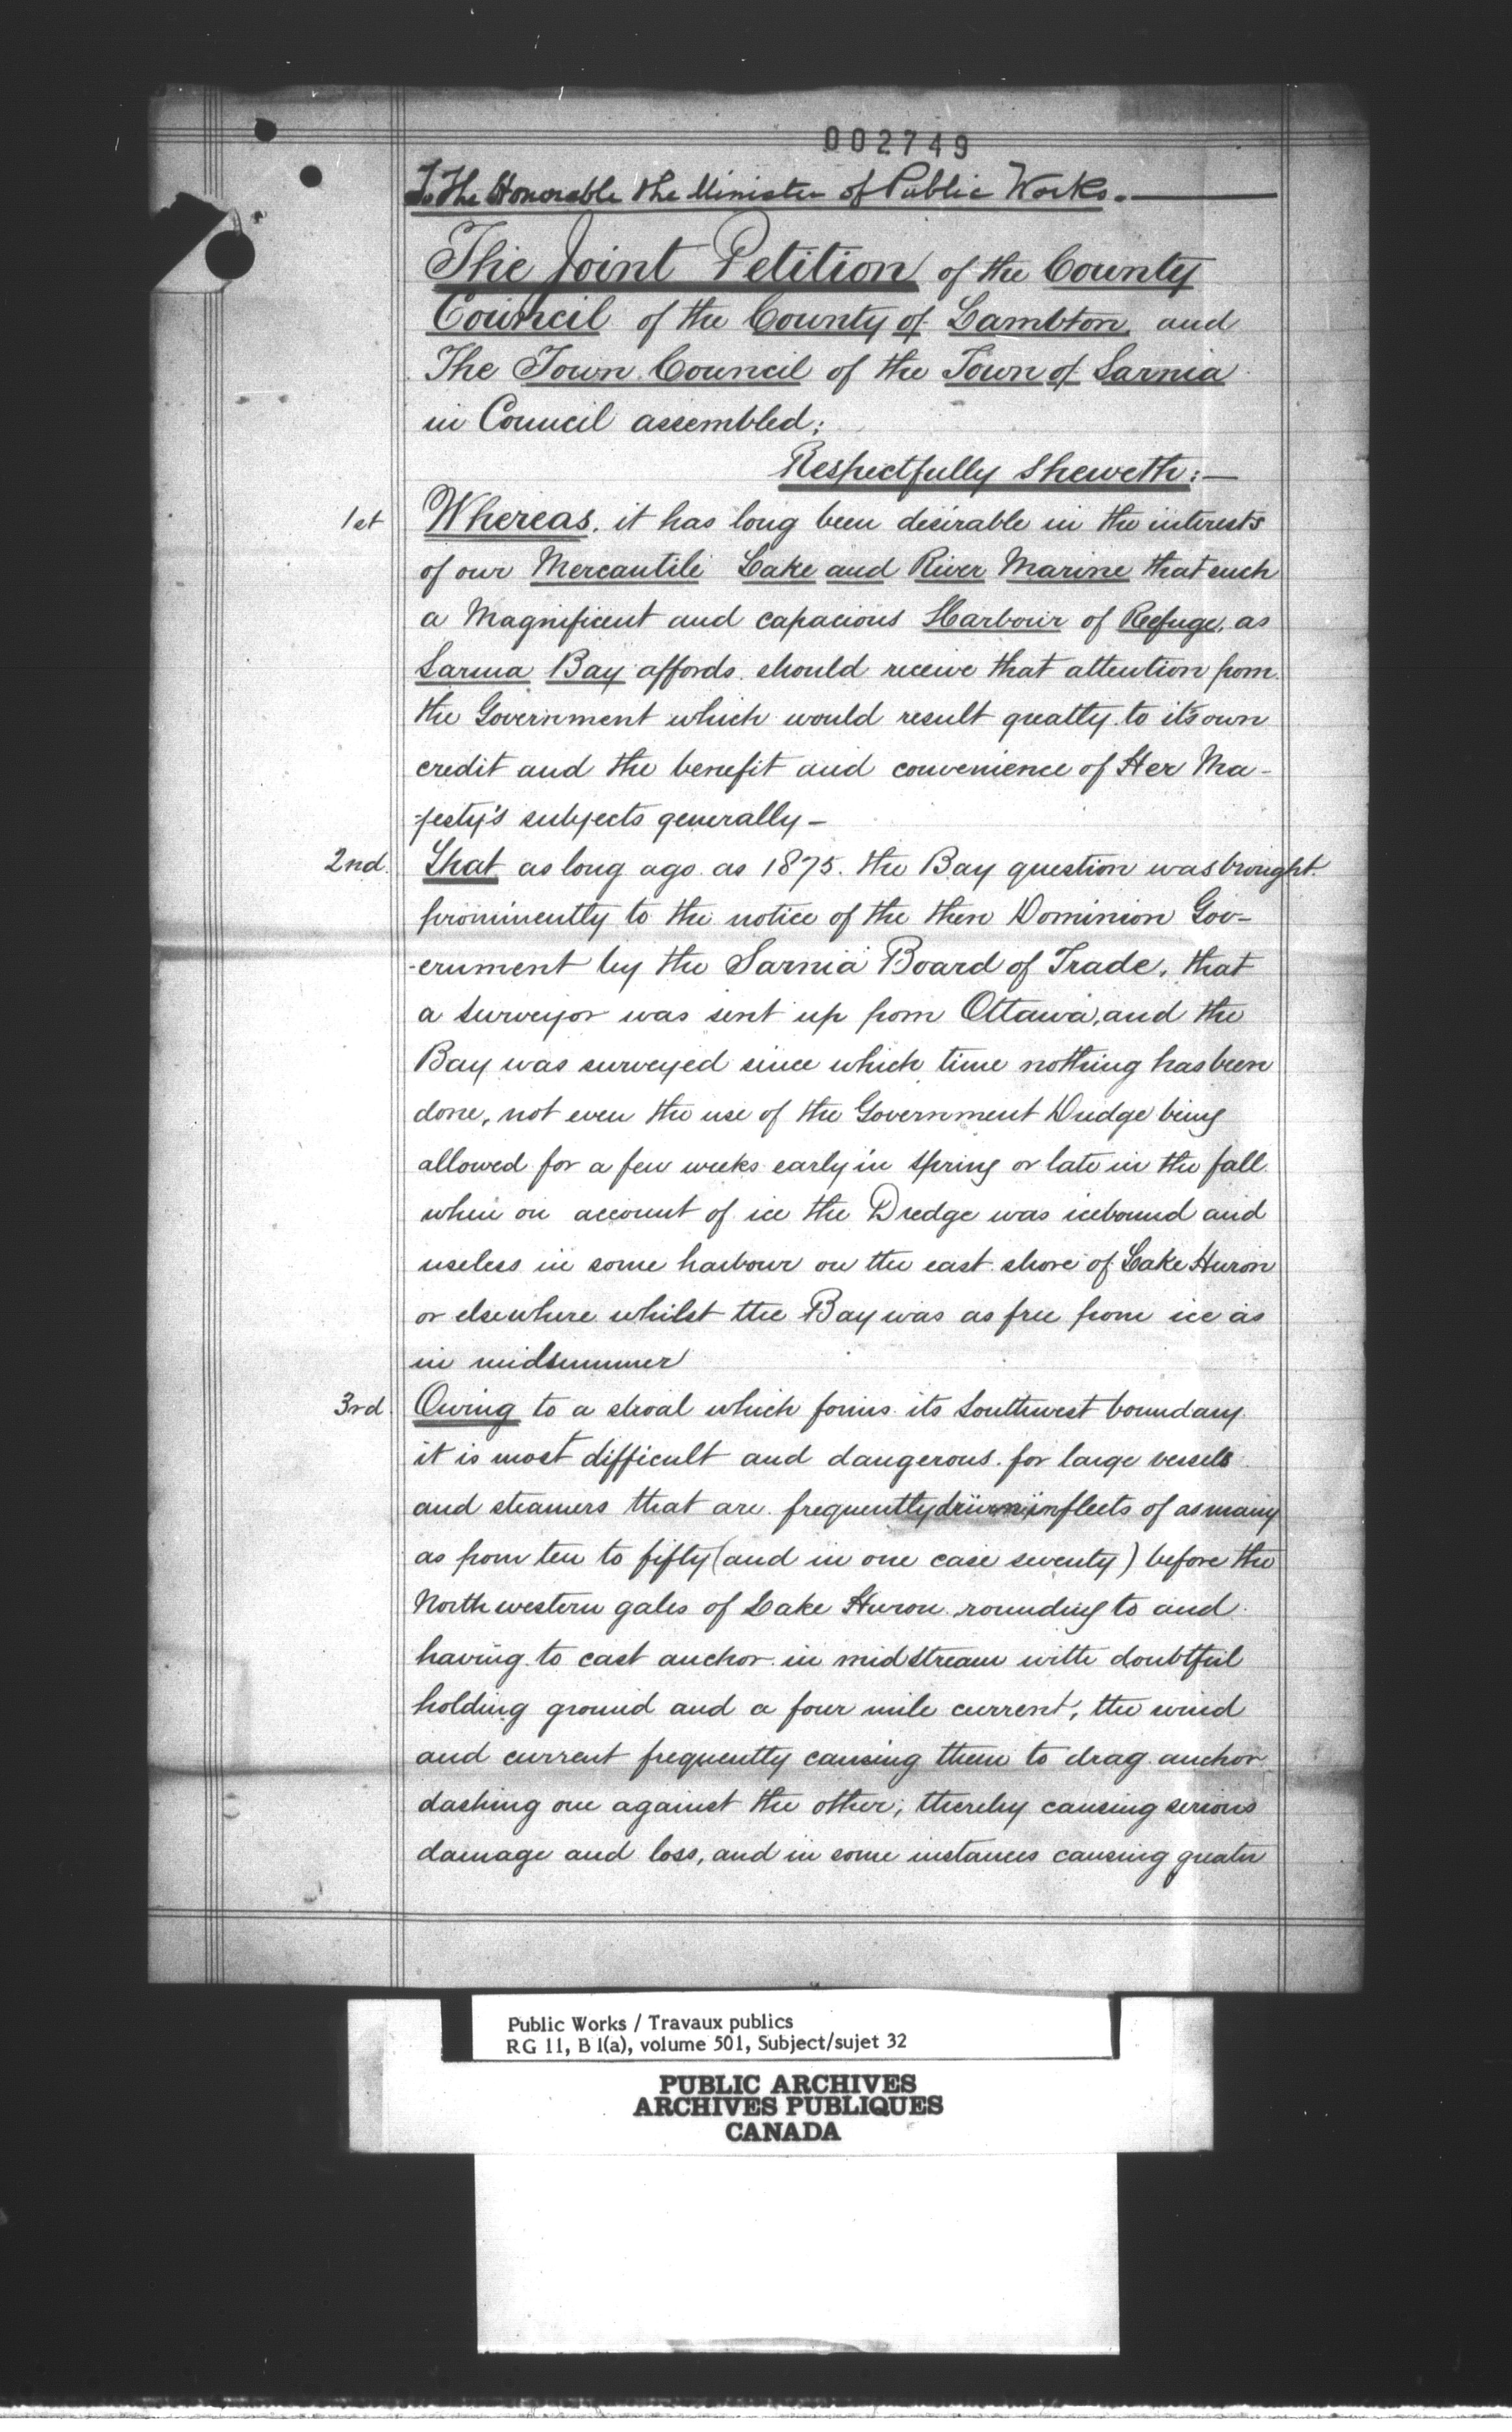 002749
To The Honorable The Minister of Public Works.—
The Joint Petition of the County
Council of the County of Lambton and
The Town Council of the Town of Sarnia
in Council assembled;
Respectfully Sheweth:—
1st Whereas, it has long been desirable in the interests
of our Mercantile Lake and River Marine that such
a Magnificent and capacious Harbour of Refuge, as
Sarnia Bay affords should receive that attention from
the Government which would result greatly to it's own
credit and the benefit and convenience of Her Ma-
-jesty's subjects generally—
2nd. That as long ago as 1875. the Bay question was brought
prominently to the notice of the then Dominion Gov-
-ernment by the Sarnia Board of Trade, that
a surveyor was sent up from Ottawa, and the
Bay was surveyed since which time nothing has been
done, not even the use of the Government Dredge being
allowed for a few weeks early in Spring or late in the fall
when on account of ice the Dredge was icebound and
useless in some harbour on the east shore of Lake Huron
or elsewhere whilst the Bay was as free from ice as
in midsummer
3rd. Owing to a shoal which forms its Southwest boundary
it is most difficult and dangerous for large vessels
and steamers that are frequently in fleets of as many
as from ten to fifty (and in one case seventy) before the
North western gales of Lake Huron rounding to and
having to cast anchor in midstream with doubtful
holding ground and a four mile current, the wind
and current frequently causing them to drag anchor
dashing one against the other; thereby causing serious
damage and loss, and in some instances causing greater
Public Works / Travaux publics
RG 11, B 1(a), volume 501, Subject/sujet 32
PUBLIC ARCHIVES
ARCHIVES PUBLIQUES
CANADA